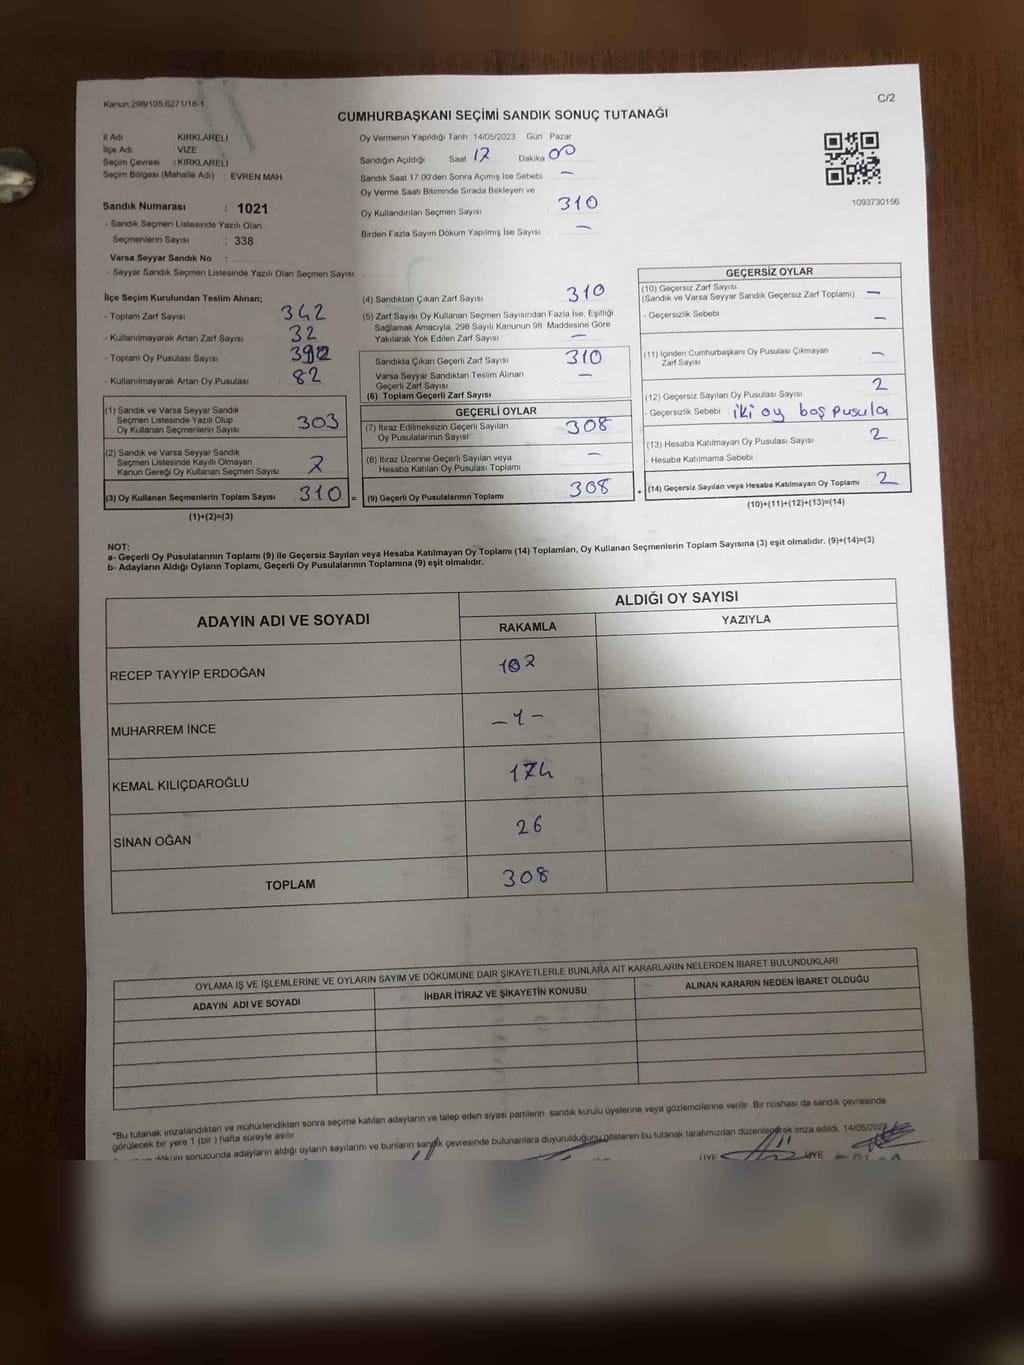 Kanun:298/105;6271/18-1
C/2
CUMHURBAŞKANI SEÇİMİ SANDIK SONUÇ TUTANAĞI
İl Adı : KIRKLARELİ
İlçe Adı : VİZE
Seçim Çevresi : KIRKLARELİ
Seçim Bölgesi (Mahalle Adı) : EVREN MAH
Sandık Numarası : 1021
- Sandık Seçmen Listesinde Yazılı Olan
Seçmenlerin Sayısı : 338
Varsa Seyyar Sandık No :
- Seyyar Sandık Seçmen Listesinde Yazılı Olan Seçmen Sayısı
Oy Vermenin Yapıldığı Tarih 14/05/2023 Gün Pazar
Sandığın Açıldığı Saat 17 Dakika 00
Sandık Saat 17 00'den Sonra Açımış İse Sebebi —
Oy Verme Saati Bitiminde Sırada Bekleyen ve
Oy Kullandırılan Seçmen Sayısı 310
Birden Fazla Sayım Döküm Yapılmış İse Sayısı —
1093730156
İlçe Seçim Kurulundan Teslim Alınan;
- Toplam Zarf Sayısı 342
- Kullanılmayarak Artan Zarf Sayısı 32
- Toplam Oy Pusulası Sayısı 392
- Kullanılmayarak Artan Oy Pusulası 82
(1) Sandık ve Varsa Seyyar Sandık
Seçmen Listesinde Yazılı Olup
Oy Kullanan Seçmenlerin Sayısı 303
(2) Sandık ve Varsa Seyyar Sandık
Seçmen Listesinde Kayıtlı Olmayan
Kanun Gereği Oy Kullanan Seçmen Sayısı 7
(3) Oy Kullanan Seçmenlerin Toplam Sayısı 310 =
(1)+(2)=(3)
(4) Sandıktan Çıkan Zarf Sayısı 310
(5) Zarf Sayısı Oy Kullanan Seçmen Sayısından Fazla İse, Eşitliği
Sağlamak Amacıyla, 298 Sayılı Kanunun 98. Maddesine Göre
Yakılarak Yok Edilen Zarf Sayısı —
Sandıkta Çıkan Geçerli Zarf Sayısı 310
Varsa Seyyar Sandıktan Teslim Alınan
Geçerli Zarf Sayısı —
(6) Toplam Geçerli Zarf Sayısı
GEÇERLİ OYLAR
(7) İtiraz Edilmeksizin Geçerli Sayılan
Oy Pusulalarının Sayısı 308
(8) İtiraz Üzerine Geçerli Sayılan veya
Hesaba Katılan Oy Pusulası Toplamı —
(9) Geçerli Oy Pusulalarının Toplamı 308 +
GEÇERSİZ OYLAR
(10) Geçersiz Zarf Sayısı
(Sandık ve Varsa Seyyar Sandık Geçersiz Zarf Toplamı) —
- Geçersizlik Sebebi —
(11) İçinden Cumhurbaşkanı Oy Pusulası Çıkmayan
Zarf Sayısı —
(12) Geçersiz Sayılan Oy Pusulası Sayısı 2
- Geçersizlik Sebebi iki oy boş pusula
(13) Hesaba Katılmayan Oy Pusulası Sayısı 2
- Hesaba Katılmama Sebebi :
(14) Geçersiz Sayılan veya Hesaba Katılmayan Oy Toplamı 2
(10)+(11)+(12)+(13)=(14)
NOT:
a- Geçerli Oy Pusulalarının Toplamı (9) ile Geçersiz Sayılan veya Hesaba Katılmayan Oy Toplamı (14) Toplamları, Oy Kullanan Seçmenlerin Toplam Sayısına (3) eşit olmalıdır. (9)+(14)=(3)
b- Adayların Aldığı Oyların Toplamı, Geçerli Oy Pusulalarının Toplamına (9) eşit olmalıdır.
ADAYIN ADI VE SOYADI
ALDIĞI OY SAYISI
RAKAMLA YAZIYLA
RECEP TAYYİP ERDOĞAN 102
MUHARREM İNCE -1-
KEMAL KILIÇDAROĞLU 174
SİNAN OĞAN 26
TOPLAM 308
OYLAMA İŞ VE İŞLEMLERİNE VE OYLARIN SAYIM VE DÖKÜMÜNE DAİR ŞİKAYETLERLE BUNLARA AİT KARARLARIN NELERDEN İBARET BULUNDUKLARI
ADAYIN ADI VE SOYADI İHBAR İTİRAZ VE ŞİKAYETİN KONUSU ALINAN KARARIN NEDEN İBARET OLDUĞU
*Bu tutanak imzalandıktan ve mühürlendikten sonra seçime katılan adayların ve talep eden siyasi partilerin sandık kurulu üyelerine veya gözlemcilerine verilir. Bir nüshası da sandık çevresinde
görülecek bir yere 1 (bir ) hafta süreyle asılır
döküm sonucunda adayların aldığı oyların sayılarını ve bunların sandık çevresinde bulunanlara duyurulduğunu gösteren bu tutanak tarafımızdan düzenlenerek imza edildi. 14/05/2023
ÜYE ÜYE